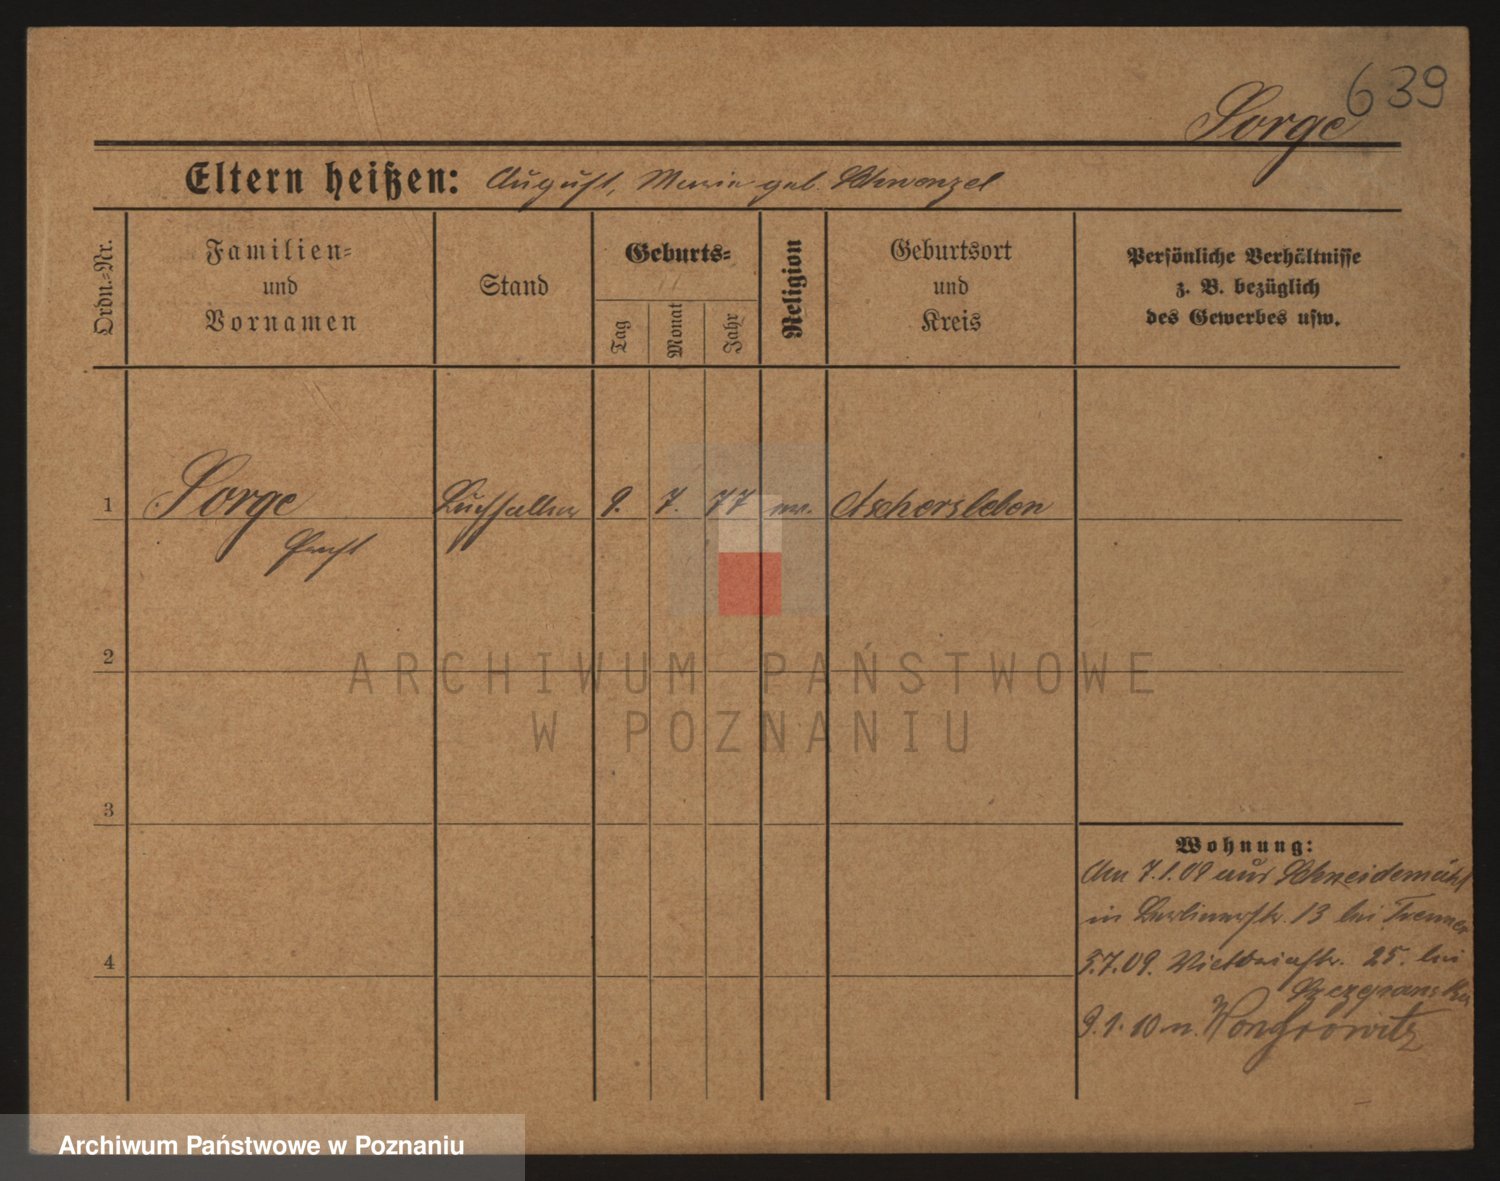 639
Sorge
Eltern heißen: August, Marie geb. Schwenzel
Ordn.-Nr.
Familien-
und
Vornamen
Stand
Geburts-
Tag
Monat
Jahr
Religion
Geburtsort
und
Kreis
Persönliche Verhältnisse
z. B. bezüglich
des Gewerbes usw.
1 Sorge Buchhalter 9. 7. 77 ev. Aschersleben
2
ARCHIWUM PAŃSTWOWE
W POZNANIU
3
Wohnung:
Am 7.1.09 aus Schneidemühl
in Berlinerstr. 13 bei
4
5.7.09. Viktoriastr. 25. bei
9.1.10 n. Wongrowitz
Archiwum Państwowe w Poznaniu